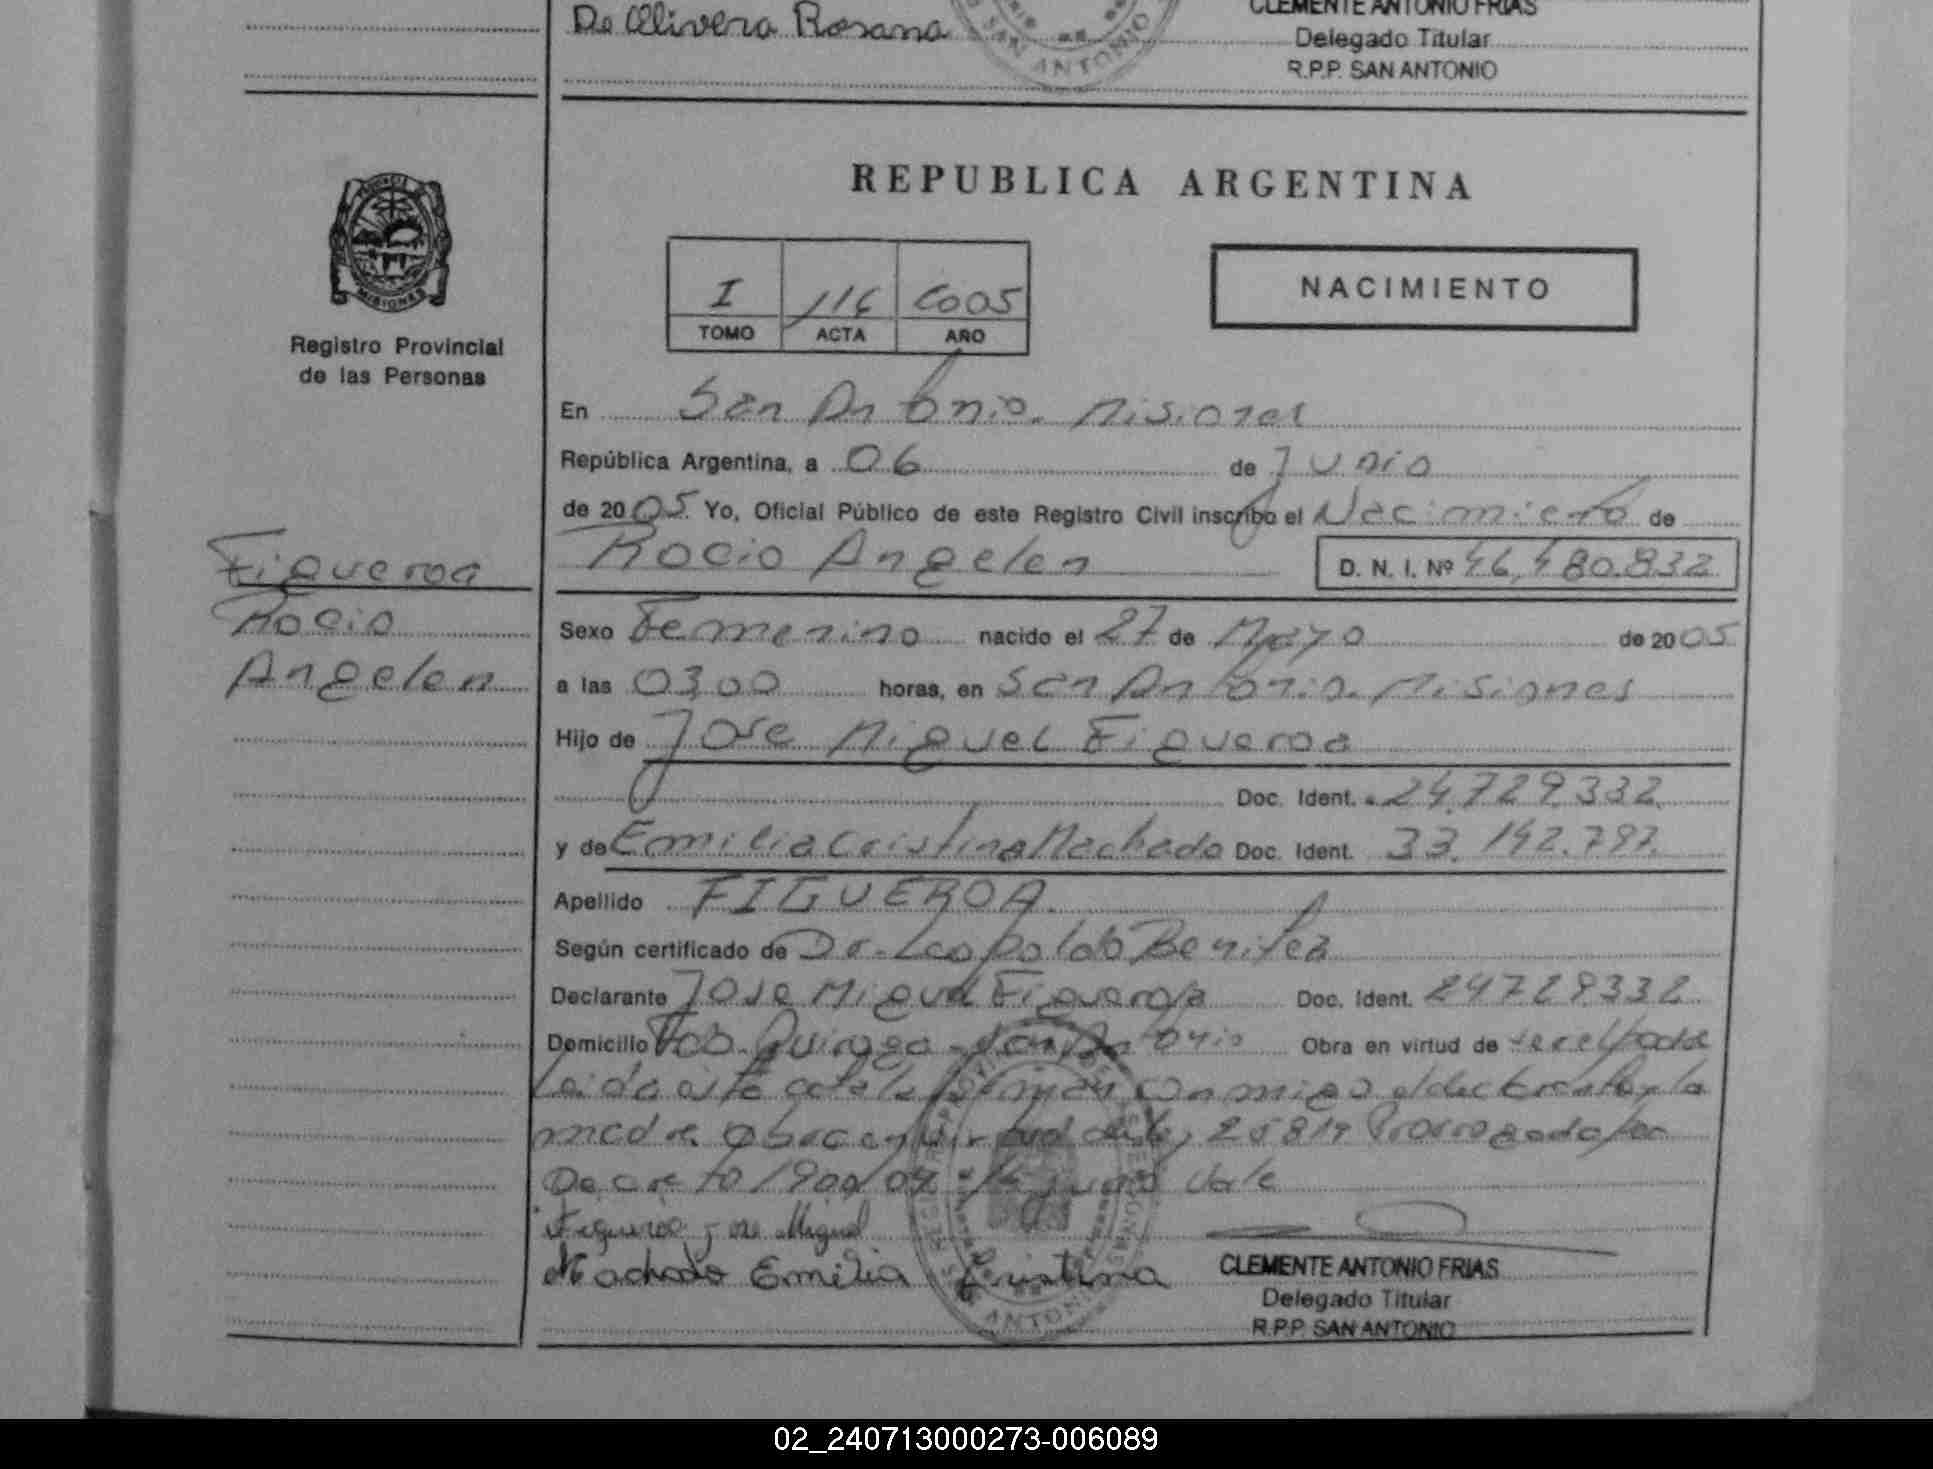 De Olivera Rosana
CLEMENTE ANTONIO FRIAS
Delegado Titular
R.P.P. SAN ANTONIO
SAN ANTONIO
PROVINCIA DE
MISIONES
Registro Provincial
de las Personas
REPUBLICA ARGENTINA
I 116 2005
TOMO ACTA AÑO
NACIMIENTO
En San Antonio. Misiones
República Argentina, a 06 de Junio
de 2005. Yo, Oficial Público de este Registro Civil inscribo el Nacimiento de
Rocio Angelen D. N. I. Nº 46,480.832
Figueroa
Rocio
Angelen
Sexo Femenino nacido el 27 de Mayo de 2005
a las 03,00 horas, en San Antonio. Misiones
Hijo de Jose Miguel Figueroa
Doc. Ident. 24.729.332
y de Emilia Cristina Machado Doc. Ident. 33.142.797.
Apellido FIGUEROA.
Según certificado de Dr. Leopoldo Benitez
Declarante Jose Miguel Figueroa Doc. Ident. 24729332
Domicilio Quiroga San Antonio Obra en virtud de
Leida esta acta la firman conmigo el declarante y la
madre obra en virtud de ley 25819 Prorrogado por
Decreto 1900/04 Vale
Figueroa Jose Miguel
Machado Emilia Cristina
CLEMENTE ANTONIO FRIAS
Delegado Titular
R.P.P. SAN ANTONIO
02_240713000273-006089